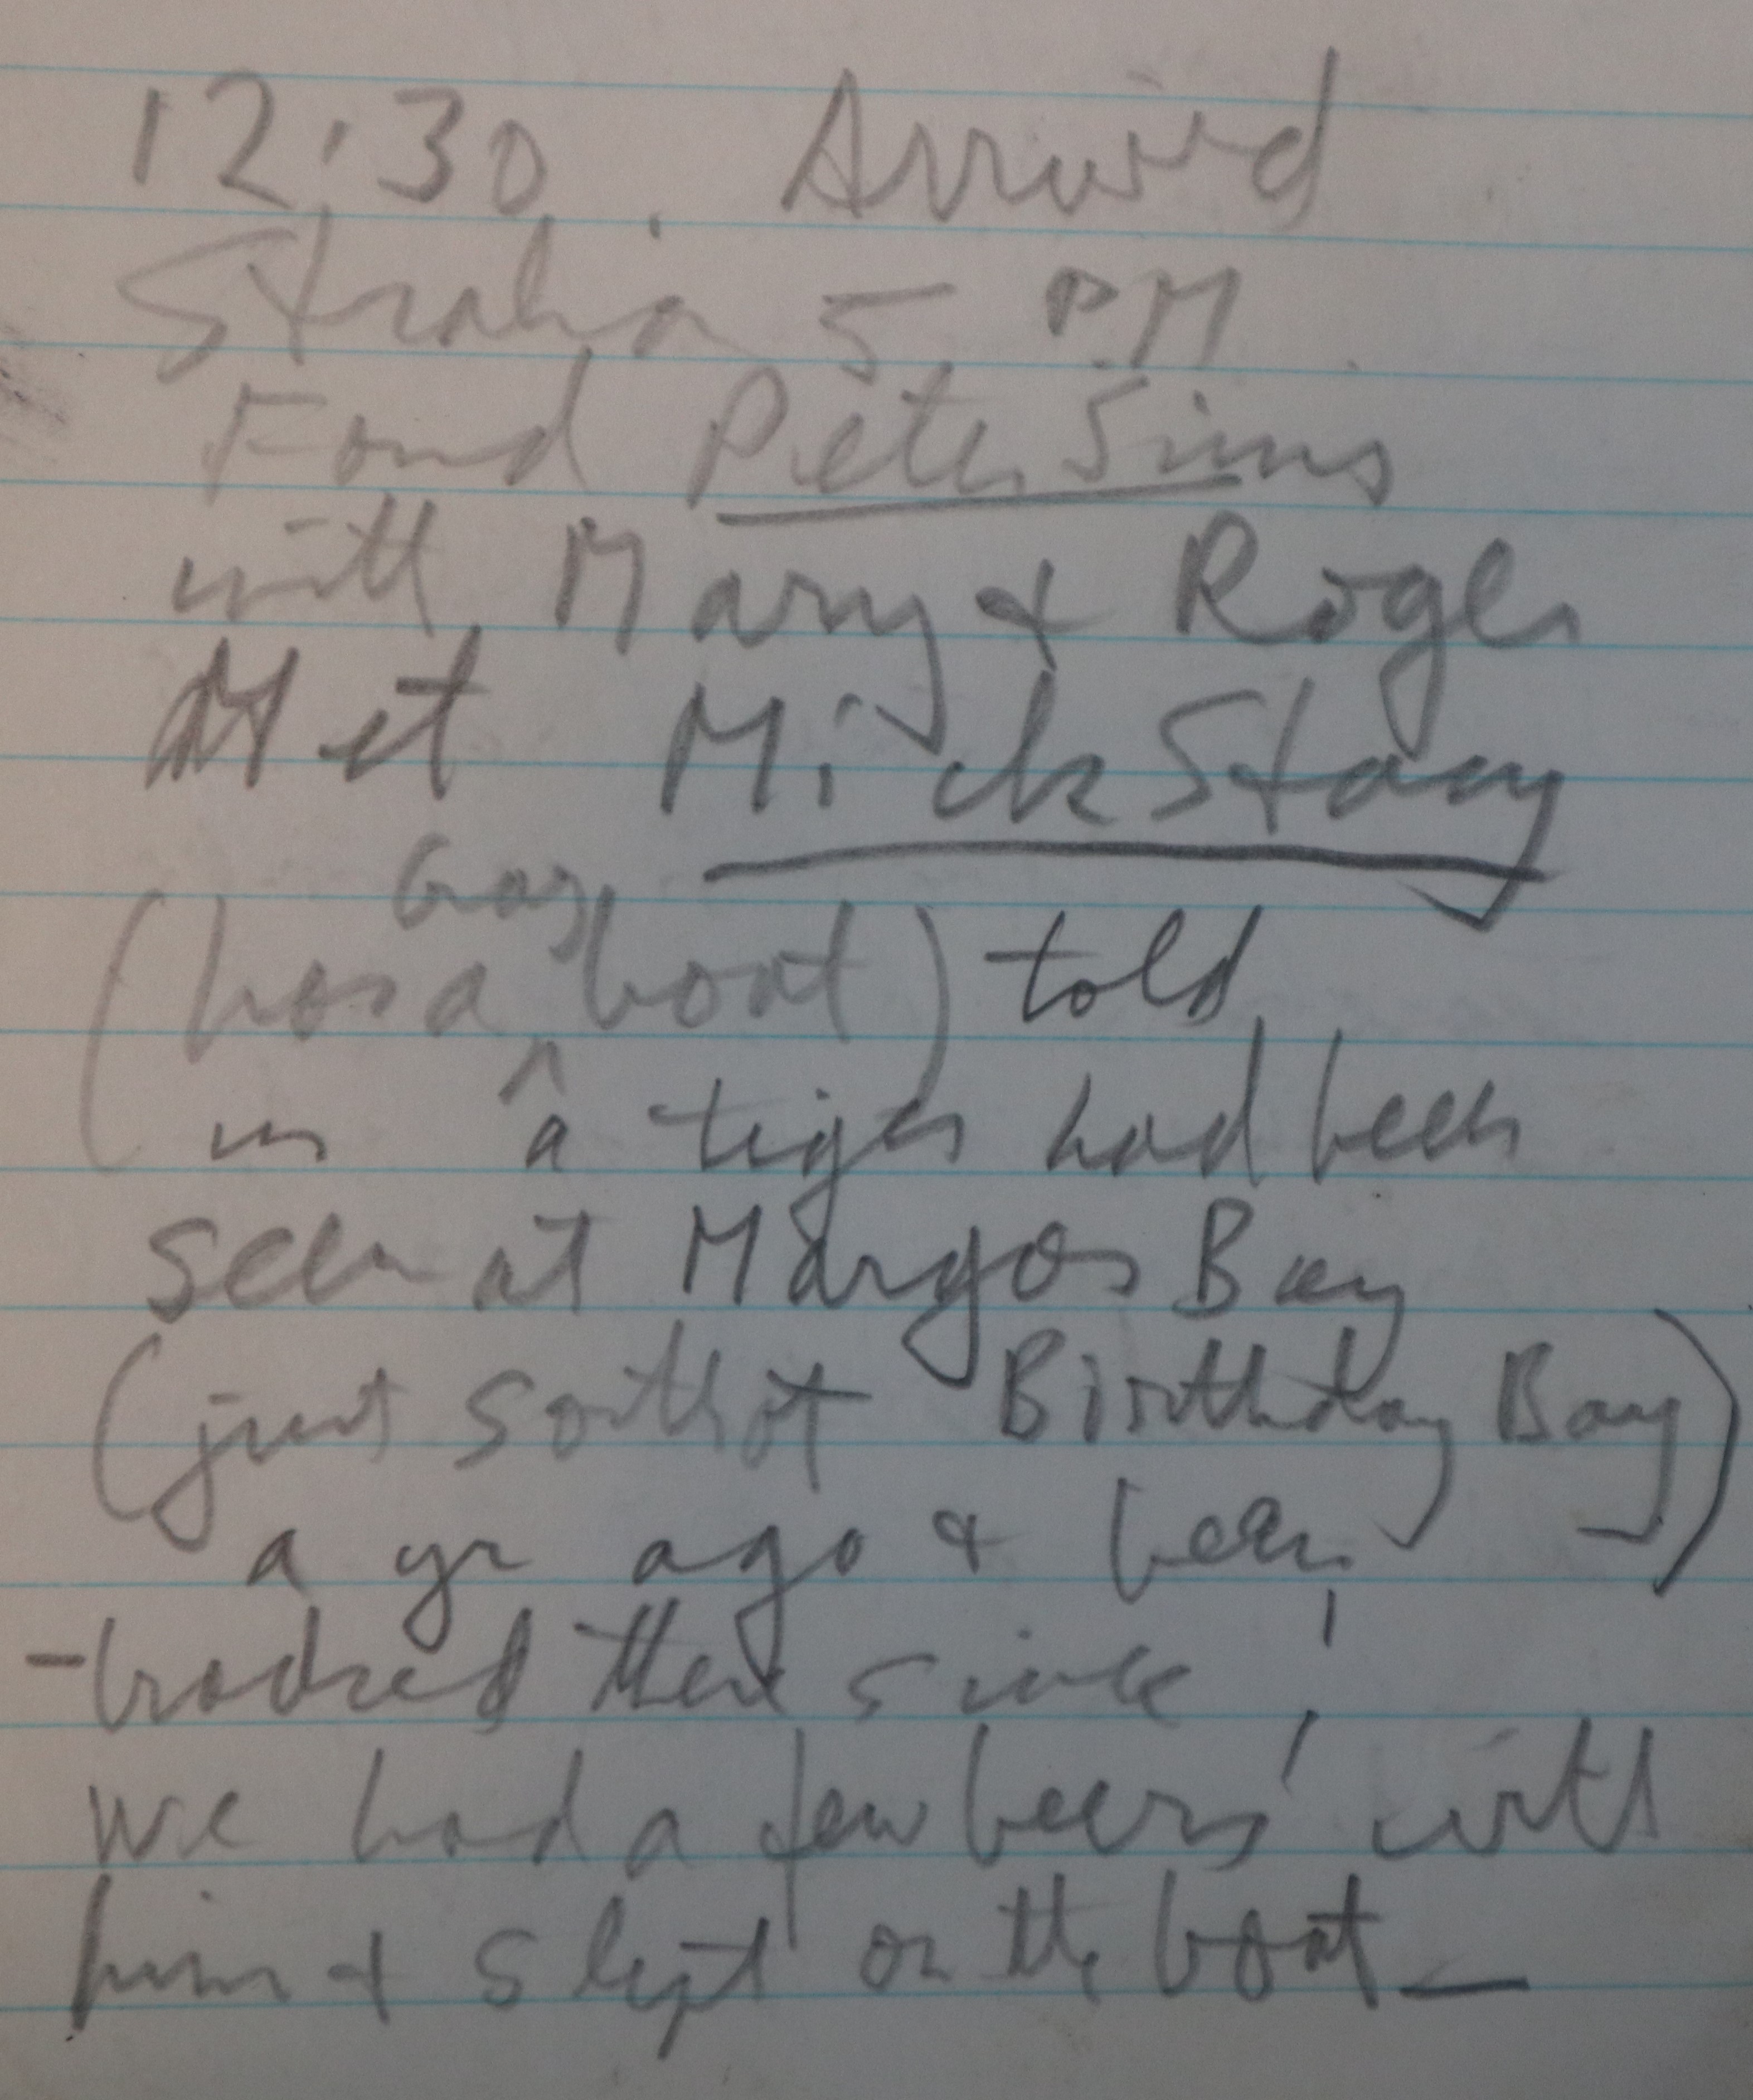 12:30. Arrived
Strahan 5 PM
Found Peter Sims
with Mary & Roger
Met Mick Stacy
(has a boat) told
us a tiger had been
seen at Margos Bay
(just south of Birthday Bay)
a yr ago & been
- tracked there since!
We had a few beers with
him & slept on the boat —